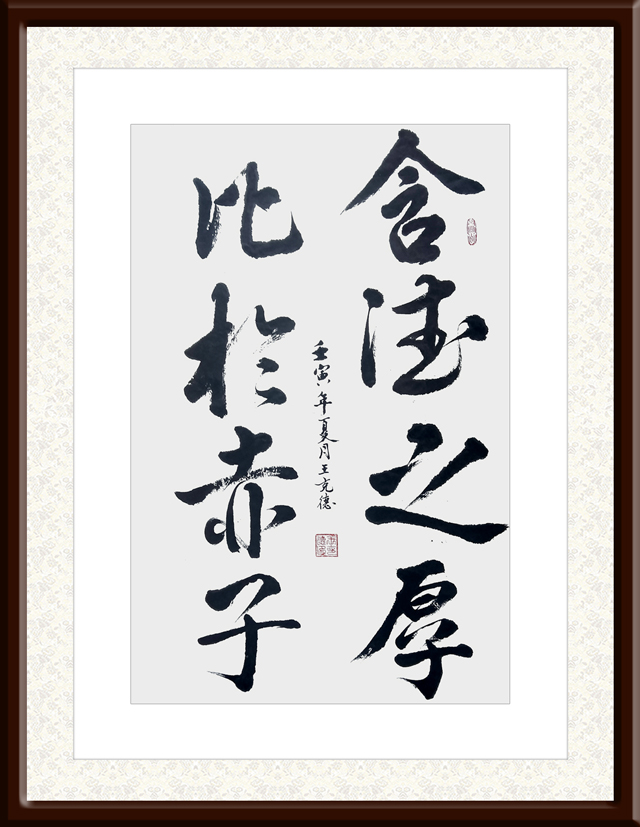 含德之厚
比於赤子
壬寅年夏月王克德